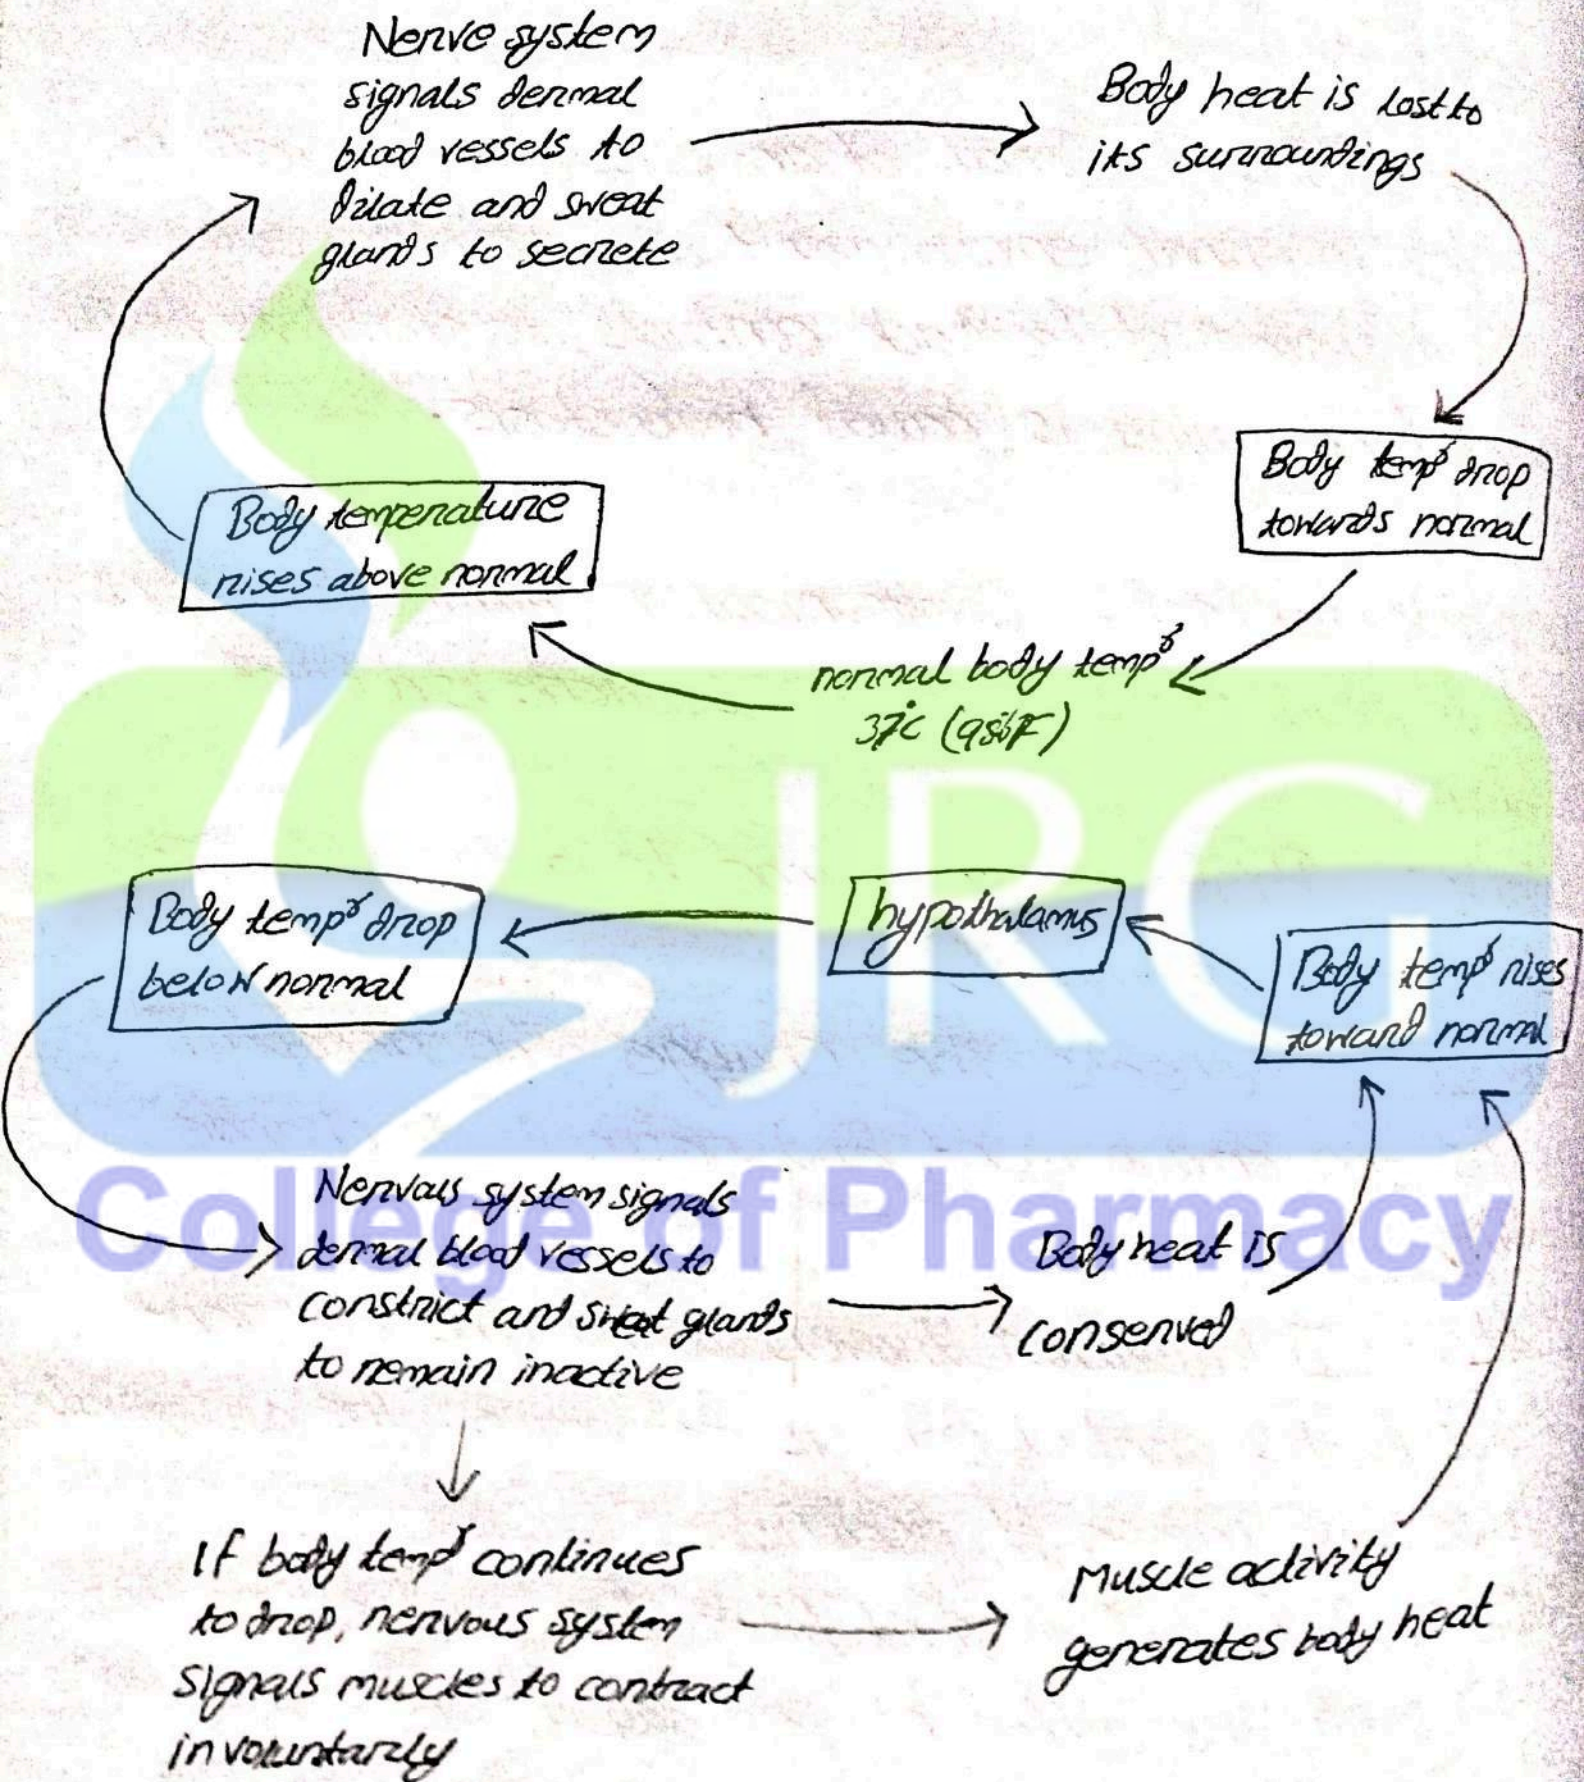 Nerve system
signals dermal
blood vessels to
dilate and sweat
glands to secrete
Body heat is lost to
its surroundings
Body tempr drop
towards normal
Body temperature
rises above normal
normal body tempr
37°C (98.6°F)
JRG
Body tempr drop
below normal
hypothalamus
Body tempr rises
toward normal
College of Pharmacy
Nervous system signals
dermal blood vessels to
constrict and sweat glands
to remain inactive
Body heat is
conserved
If body tempr continues
to drop, nervous system
signals muscles to contract
involuntarily
Muscle activity
generates body heat